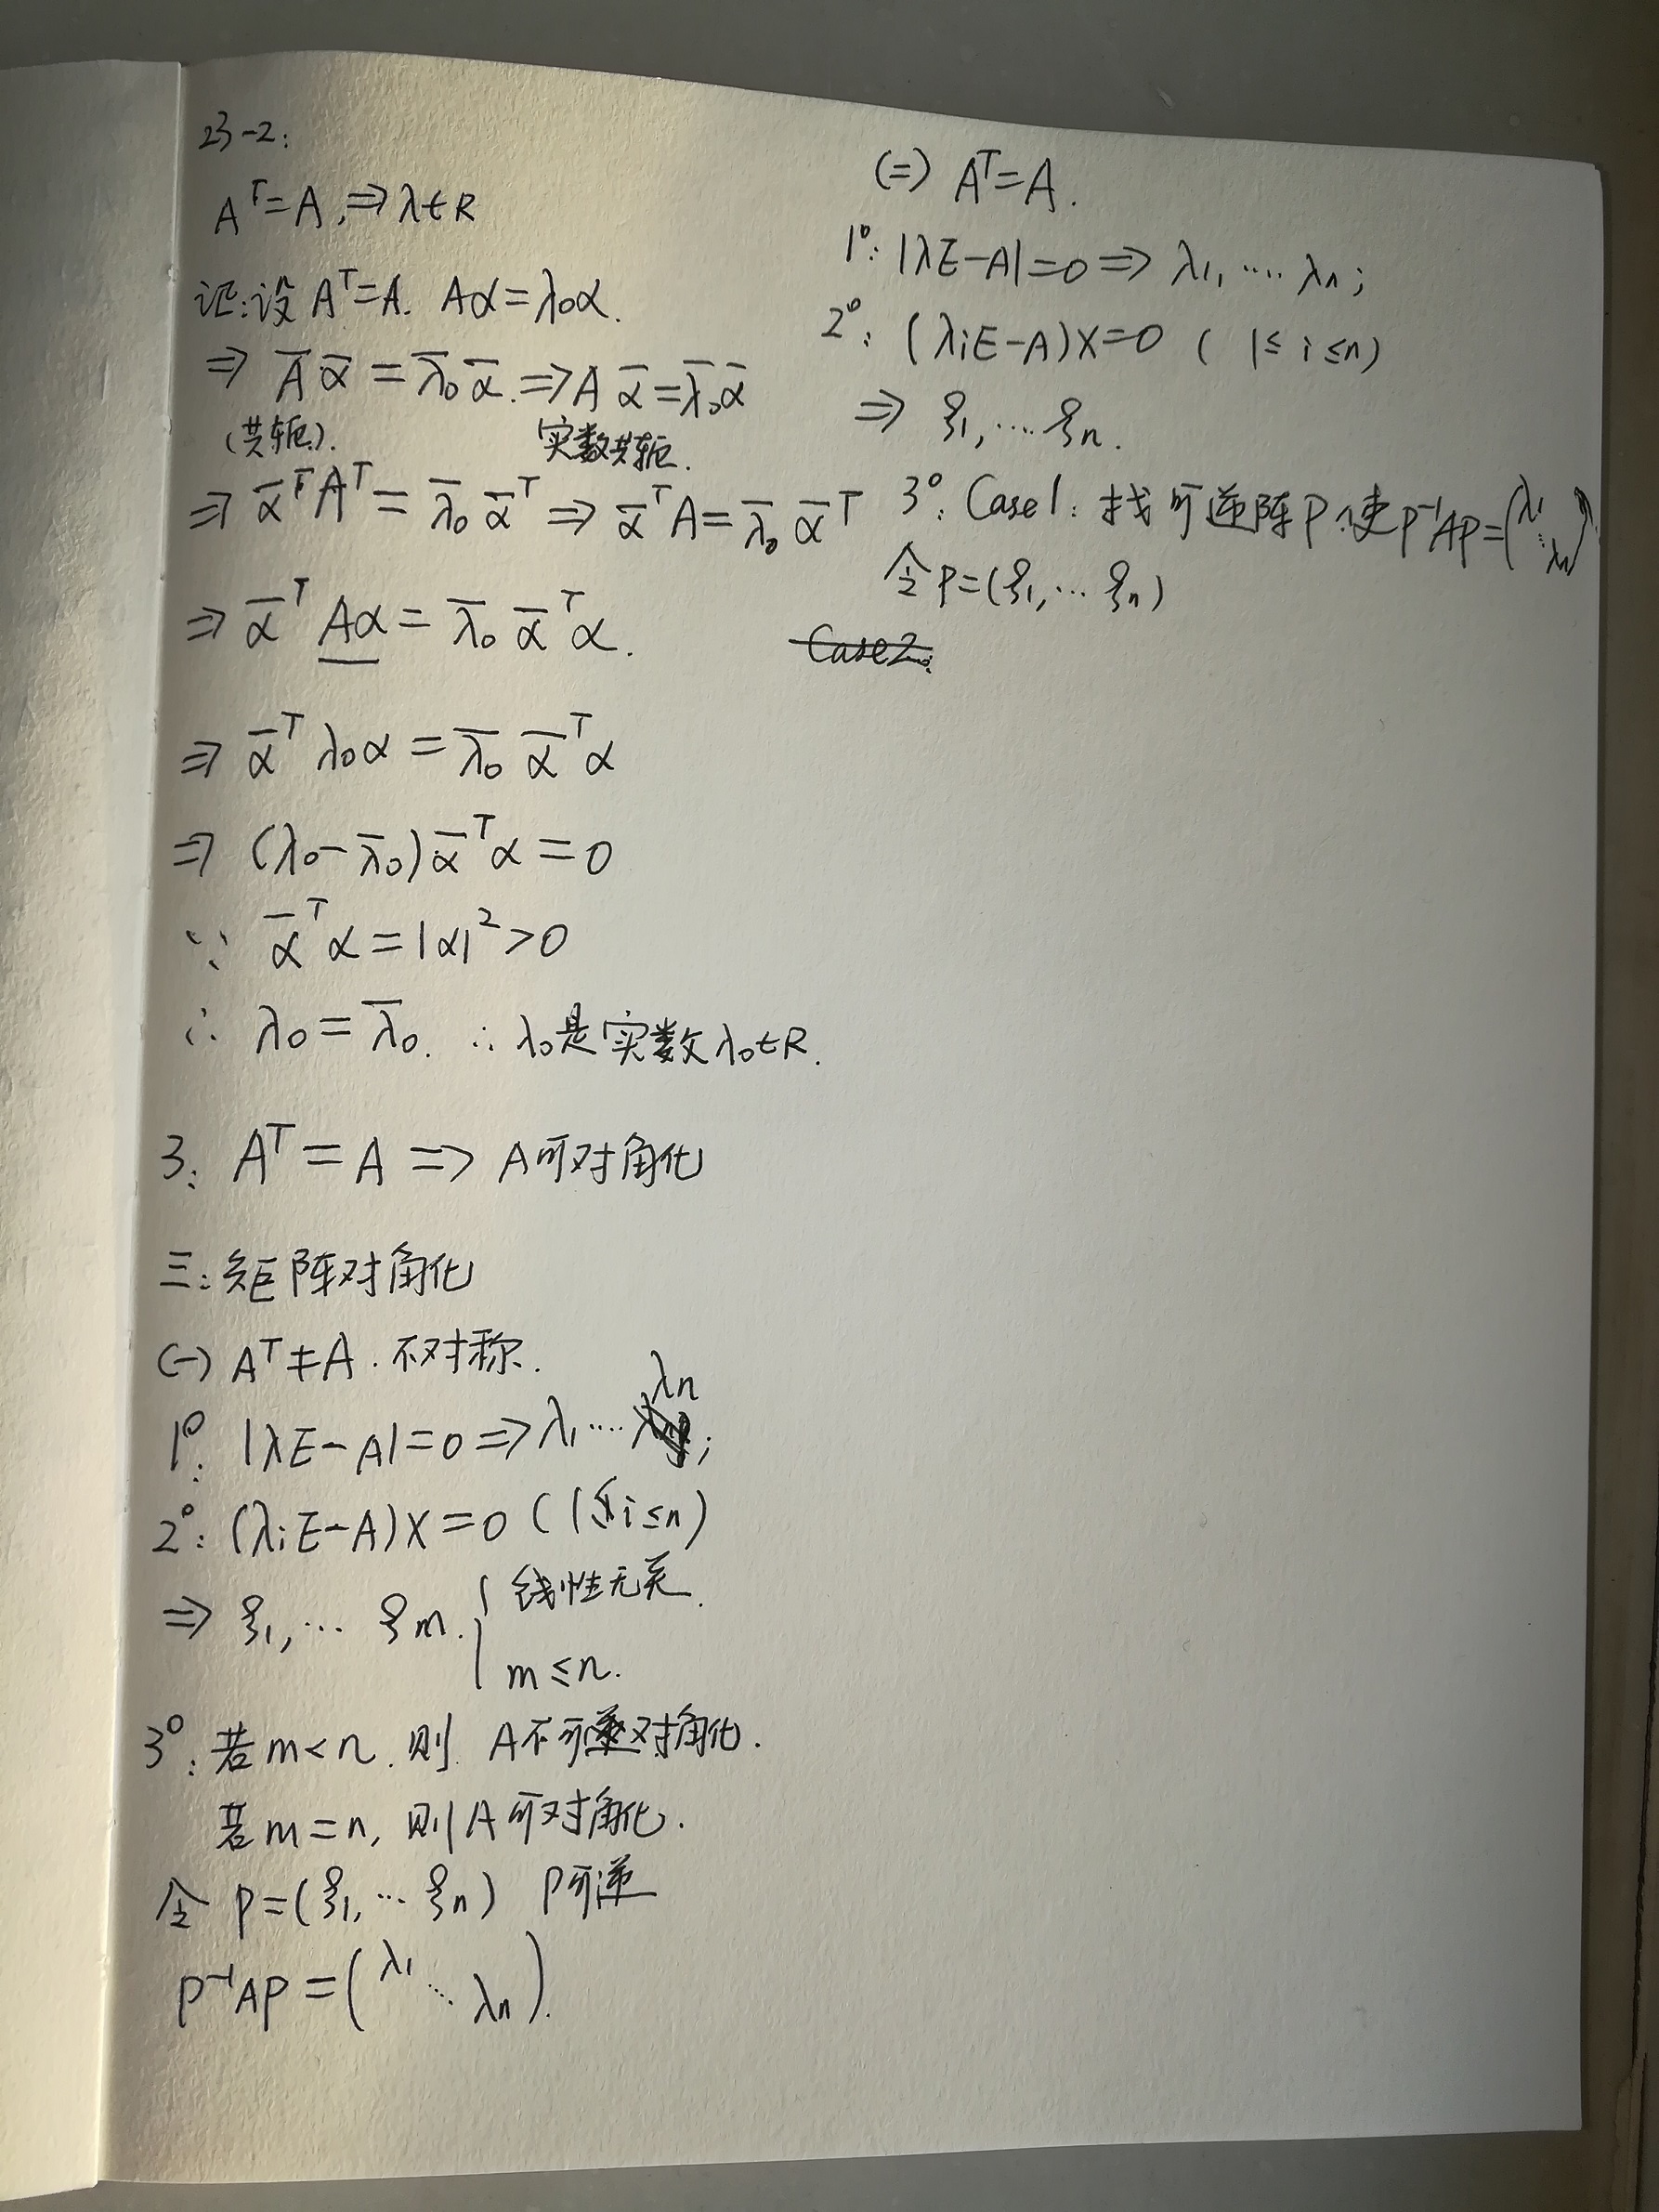 23-2:
Aᵀ=A, ⇒ λ∈R
证:设Aᵀ=A. Aα=λ₀α.
⇒ A̅ α̅ = λ̅₀ α̅. ⇒ A α̅ = λ̅₀ α̅
(共轭). 实数共轭.
⇒ α̅ᵀAᵀ = λ̅₀ α̅ᵀ ⇒ α̅ᵀA = λ̅₀ α̅ᵀ
⇒ α̅ᵀ Aα = λ̅₀ α̅ᵀα.
⇒ α̅ᵀ λ₀α = λ̅₀ α̅ᵀα
⇒ (λ₀-λ̅₀)α̅ᵀα = 0
∵ α̅ᵀα = |α|² > 0
∴ λ₀ = λ̅₀. ∴ λ₀是实数 λ₀∈R.
3: Aᵀ = A => A可对角化
三:矩阵对角化
(一) Aᵀ≠A. 不对称.
1°: |λE-A|=0 ⇒ λ₁....λn;
2°: (λiE-A)X=0 (1≤i≤n)
⇒ ξ₁,... ξm. { 线性无关.
m≤n.
3°: 若m<n. 则 A不可对角化.
若m=n, 则A可对角化.
令 P=(ξ₁,... ξn) P可逆
P⁻¹AP = (λ₁ ⋱ λn).
(二) Aᵀ=A.
1°: |λE-A|=0 ⇒ λ₁,.... λn;
2°: (λiE-A)X=0 (1≤i≤n)
⇒ ξ₁,.... ξn.
3°: Case1: 找可逆阵P.使P⁻¹AP=(λ₁ ⋱ λn).
令P=(ξ₁,... ξn)
Case2: